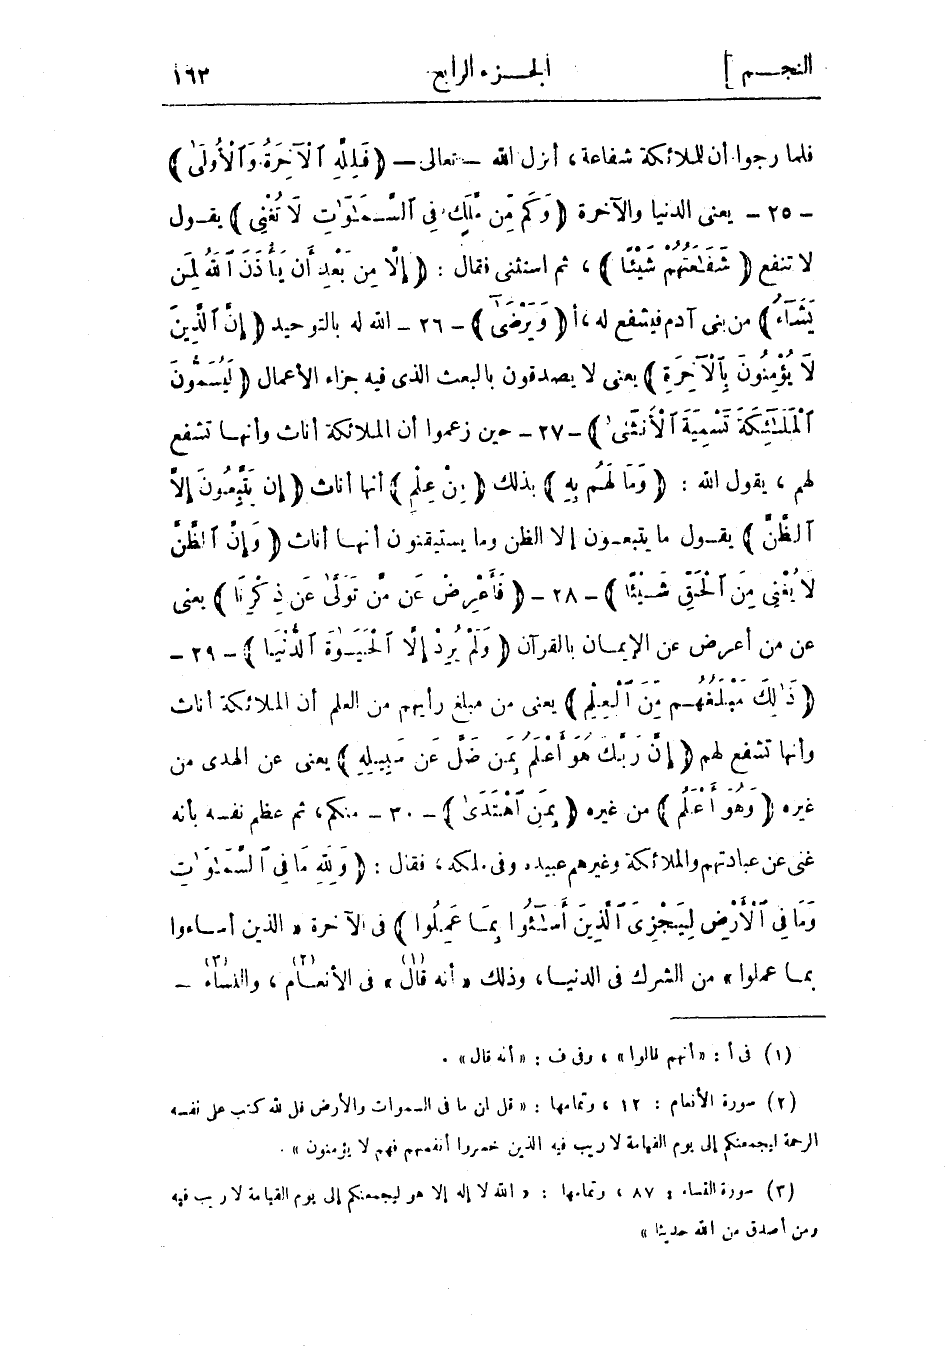 النجم ] الجزء الرابع ١٦٣
فلما رجوا أن للملائكة شفاعة، أنزل الله – تعالى – ﴿ فَلِلَّهِ ٱلْآخِرَةُ وَٱلْأُولَىٰ ﴾
– ٢٥ – يعنى الدنيا والآخرة ﴿ وَكَم مِّن مَّلَكٍ فِى ٱلسَّمَٰوَٰتِ لَا تُغْنِى ﴾ يقول
لا تنفع ﴿ شَفَٰعَتُهُمْ شَيْئًا ﴾ ، ثم استثنى فقال : ﴿ إِلَّا مِن بَعْدِ أَن يَأْذَنَ ٱللَّهُ لِمَن
يَشَآءُ ﴾ من بنى آدم فيشفع له ،أ ﴿ وَيَرْضَىٰٓ ﴾ – ٢٦ – الله له بالتوحيد ﴿ إِنَّ ٱلَّذِينَ
لَا يُؤْمِنُونَ بِٱلْآخِرَةِ ﴾ يعنى لا يصدقون بالبعث الذى فيه جزاء الأعمال ﴿ لَيُسَمُّونَ
ٱلْمَلَٰٓئِكَةَ تَسْمِيَةَ ٱلْأُنثَىٰ ﴾ – ٢٧ – حين زعموا أن الملائكة أناث وأنها تشفع
لهم ، يقول الله : ﴿ وَمَا لَهُم بِهِ ﴾ بذلك ﴿ مِنْ عِلْمٍ ﴾ أنها أناث ﴿ إِن يَتَّبِعُونَ إِلَّا
ٱلظَّنَّ ﴾ يقول ما يتبعون إلا الظن وما يستيقنون أنها أناث ﴿ وَإِنَّ ٱلظَّنَّ
لَا يُغْنِى مِنَ ٱلْحَقِّ شَيْئًا ﴾ – ٢٨ – ﴿ فَأَعْرِضْ عَن مَّن تَوَلَّىٰ عَن ذِكْرِنَا ﴾ يعنى
عن من أعرض عن الإيمان بالقرآن ﴿ وَلَمْ يُرِدْ إِلَّا ٱلْحَيَوٰةَ ٱلدُّنْيَا ﴾ – ٢٩ –
﴿ ذَٰلِكَ مَبْلَغُهُم مِّنَ ٱلْعِلْمِ ﴾ يعنى من مبلغ رأيهم من العلم أن الملائكة أناث
وأنها تشفع لهم ﴿ إِنَّ رَبَّكَ هُوَ أَعْلَمُ بِمَن ضَلَّ عَن سَبِيلِهِ ﴾ يعنى عن الهدى من
غيره ﴿ وَهُوَ أَعْلَمُ ﴾ من غيره ﴿ بِمَنِ ٱهْتَدَىٰ ﴾ – ٣٠ – منكم، ثم عظم نفسه بأنه
غنى عن عبادتهم والملائكة وغيرهم عبيده وفى ملكه، فقال : ﴿ وَلِلَّهِ مَا فِى ٱلسَّمَٰوَٰتِ
وَمَا فِى ٱلْأَرْضِ لِيَجْزِىَ ٱلَّذِينَ أَسَٰٓئُوا بِمَا عَمِلُوا ﴾ فى الآخرة « الذين أساءوا
بما عملوا » من الشرك فى الدنيا، وذلك « أنه قال(١) » فى الأنعام(٢) ، والنساء(٣) –
(١) فى أ : «أنهم قالوا» ، وفى ف : «أنه قال» .
(٢) سورة الأنعام : ١٢ ، وتمامها : « قل لمن ما فى السموات والأرض قل لله كتب على نفسه
الرحمة ليجمعنكم إلى يوم القيامة لا ريب فيه الذين خسروا أنفسهم فهم لا يؤمنون » .
(٣) سورة النساء : ٨٧ ، وتمامها : « الله لا إله إلا هو ليجمعنكم إلى يوم القيامة لا ريب فيه
ومن أصدق من الله حديثا »